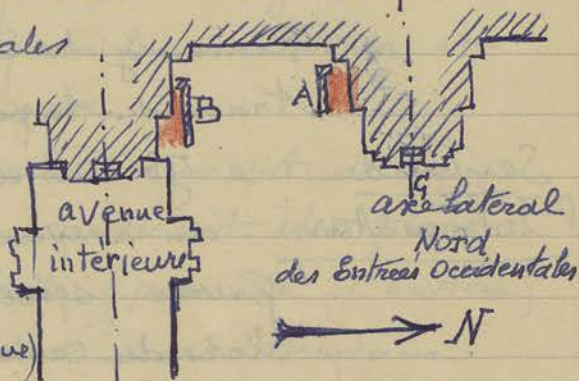 ales
B
A
G
avenue
intérieure
axe lateral
Nord
des Entrées Occidentales
N
ue)